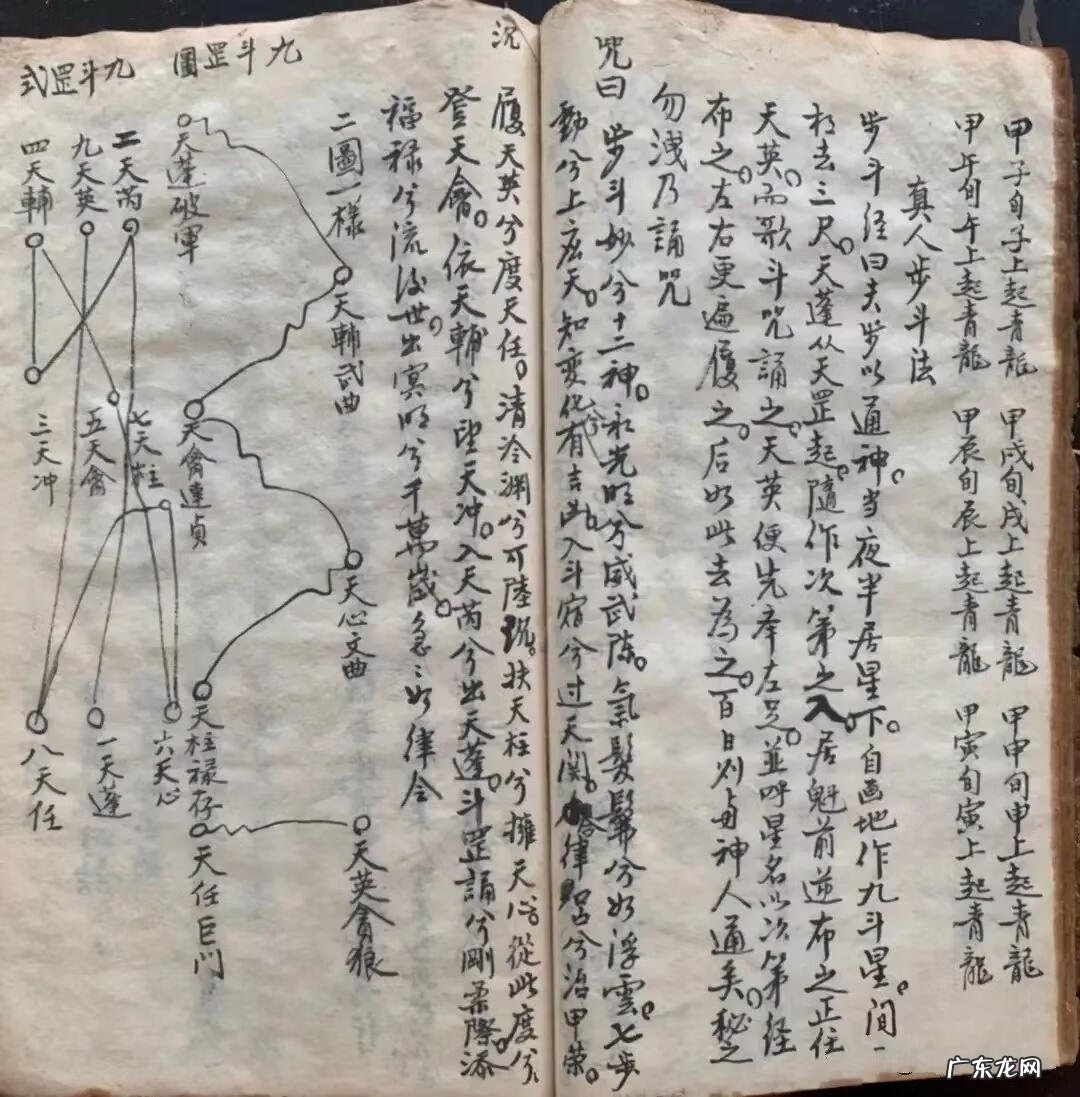 甲子旬子上起青龍　甲戌旬戌上起青龍　甲申旬申上起青龍
甲午旬午上起青龍　甲辰旬辰上起青龍　甲寅旬寅上起青龍
真人步斗法
步斗经曰夫步以通神。当夜半居星下。自画地作九斗星。间一
相去三尺。天蓬从天罡起。隨作次第之入。居魁前逆布之正住
天英。而歌斗咒誦之。天英便先举左足。並呼星名以次第经
布之。左右更遍履之。后如此去為之。百日则与神人通矣。秘之
勿洩乃誦咒
咒曰　步斗妙兮十二神。永光明兮威武陈。氣髮髴兮如浮雲。七步
動兮上应天。知変化兮有吉凶。入斗宿兮过天関。合律吕兮治甲榮。
履天英兮度天任。清冷淵兮可陸沉。扶天柱兮擁天心。從此度兮
沉
登天禽。依天輔兮望天冲。入天芮兮出天蓬。斗罡誦兮剛柔際。添
福禄兮流後世。出冥明兮千萬歲。急〻如律令
二圖一樣
九斗罡圖
天蓬破軍
天輔武曲
天禽連貞
天心文曲
天柱禄存
天任巨門
天英貪狼
九斗罡式
二天芮
九天英
四天輔
七天柱
五天禽
三天冲
六天心
一天蓬
八天任
广东龙网